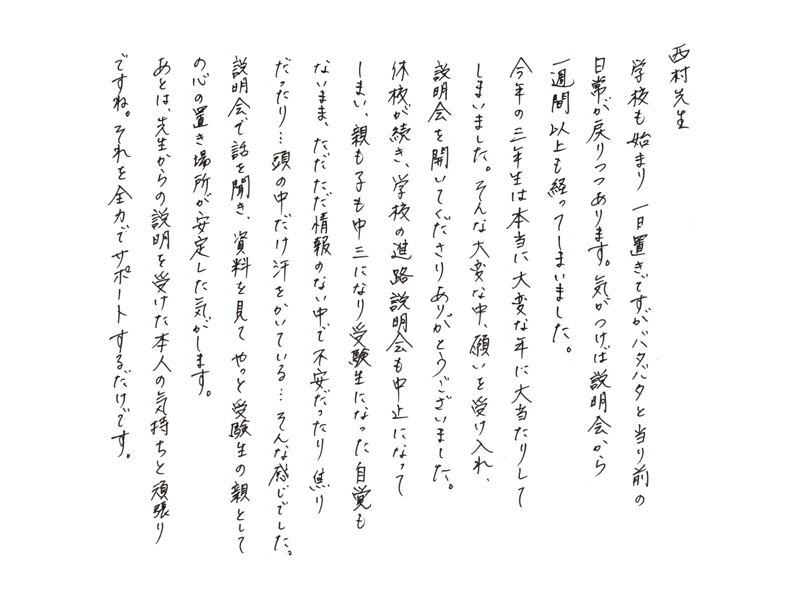 西村先生
学校も始まり 一日置きですがバタバタと当り前の
日常が戻りつつあります。気がつけば説明会から
一週間以上も経ってしまいました。
今年の三年生は本当に大変な年に大当たりして
しまいました。そんな大変な中、願いを受け入れ、
説明会を開いてくださりありがとうございました。
休校が続き、学校の進路説明会も中止になって
しまい、親も子も中三になり受験生になった自覚も
ないまま、ただただ情報のない中で不安だったり焦り
だったり…頭の中だけ汗をかいている…そんな感じでした。
説明会で話を聞き、資料を見て やっと受験生の親として
の心の置き場所が安定した気がします。
あとは、先生からの説明を受けた本人の気持ちと頑張り
ですね。それを全力でサポートするだけです。